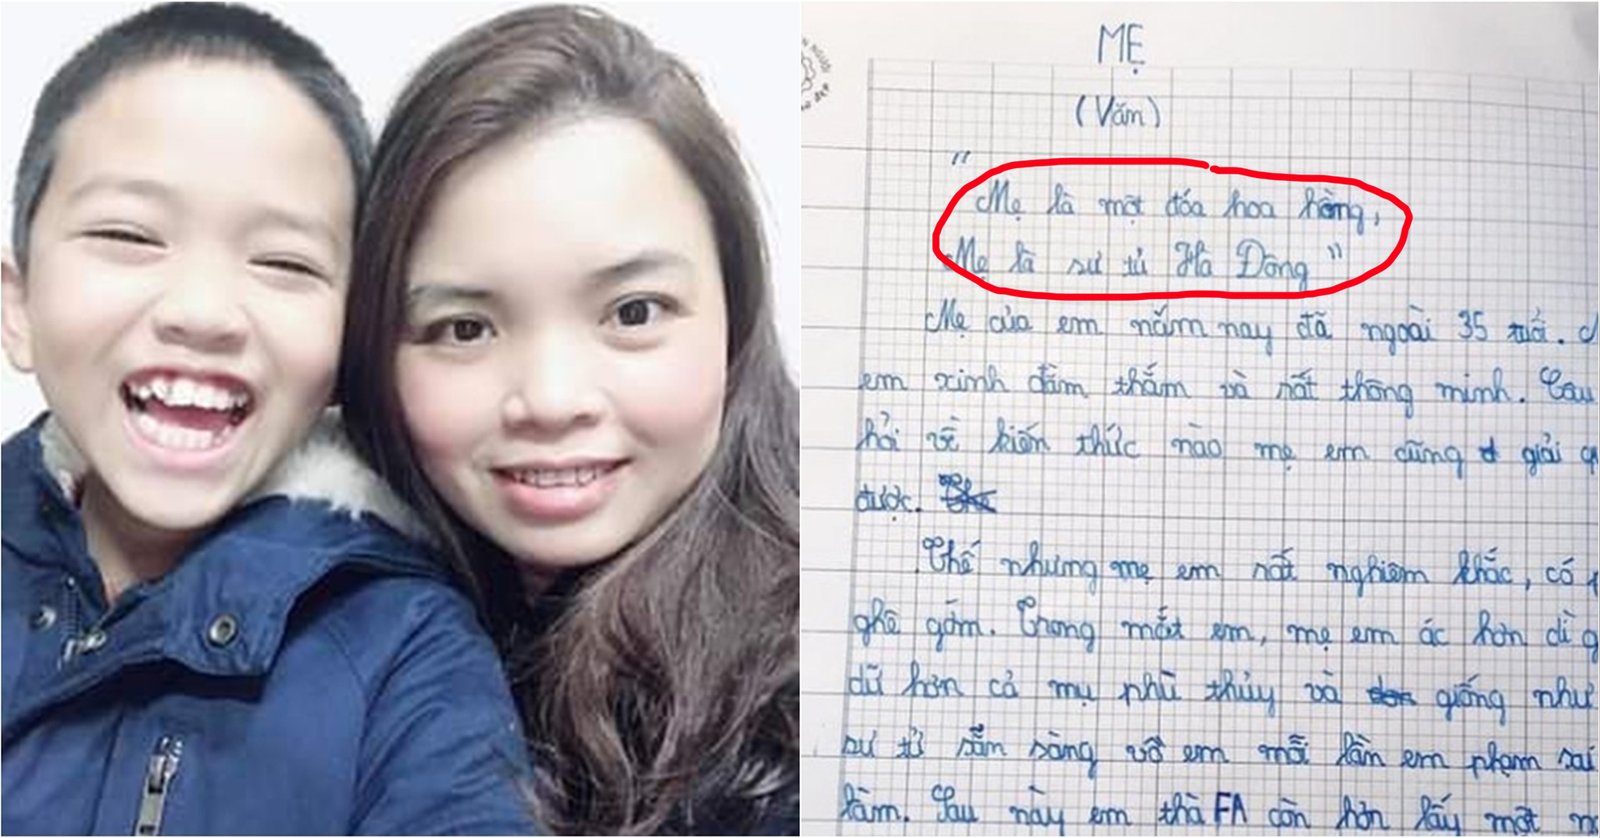 MẸ
(Văn)
"
Mẹ là một đóa hoa hồng,
Mẹ là sư tử Hà Đông"
Mẹ của em năm nay đã ngoài 35 tuổi.
em xinh đằm thắm và rất thông minh. Câu
hỏi về kiến thức nào mẹ em cũng giải
được.
Thế nhưng mẹ em rất nghiêm khắc, có
ghê gớm. Trong mắt em, mẹ em ác hơn dì
dữ hơn cả mụ phù thủy và giống như
sư tử sẵn sàng vồ em mỗi lần em phạm sai
lầm. Sau này em thà FA còn hơn lấy một